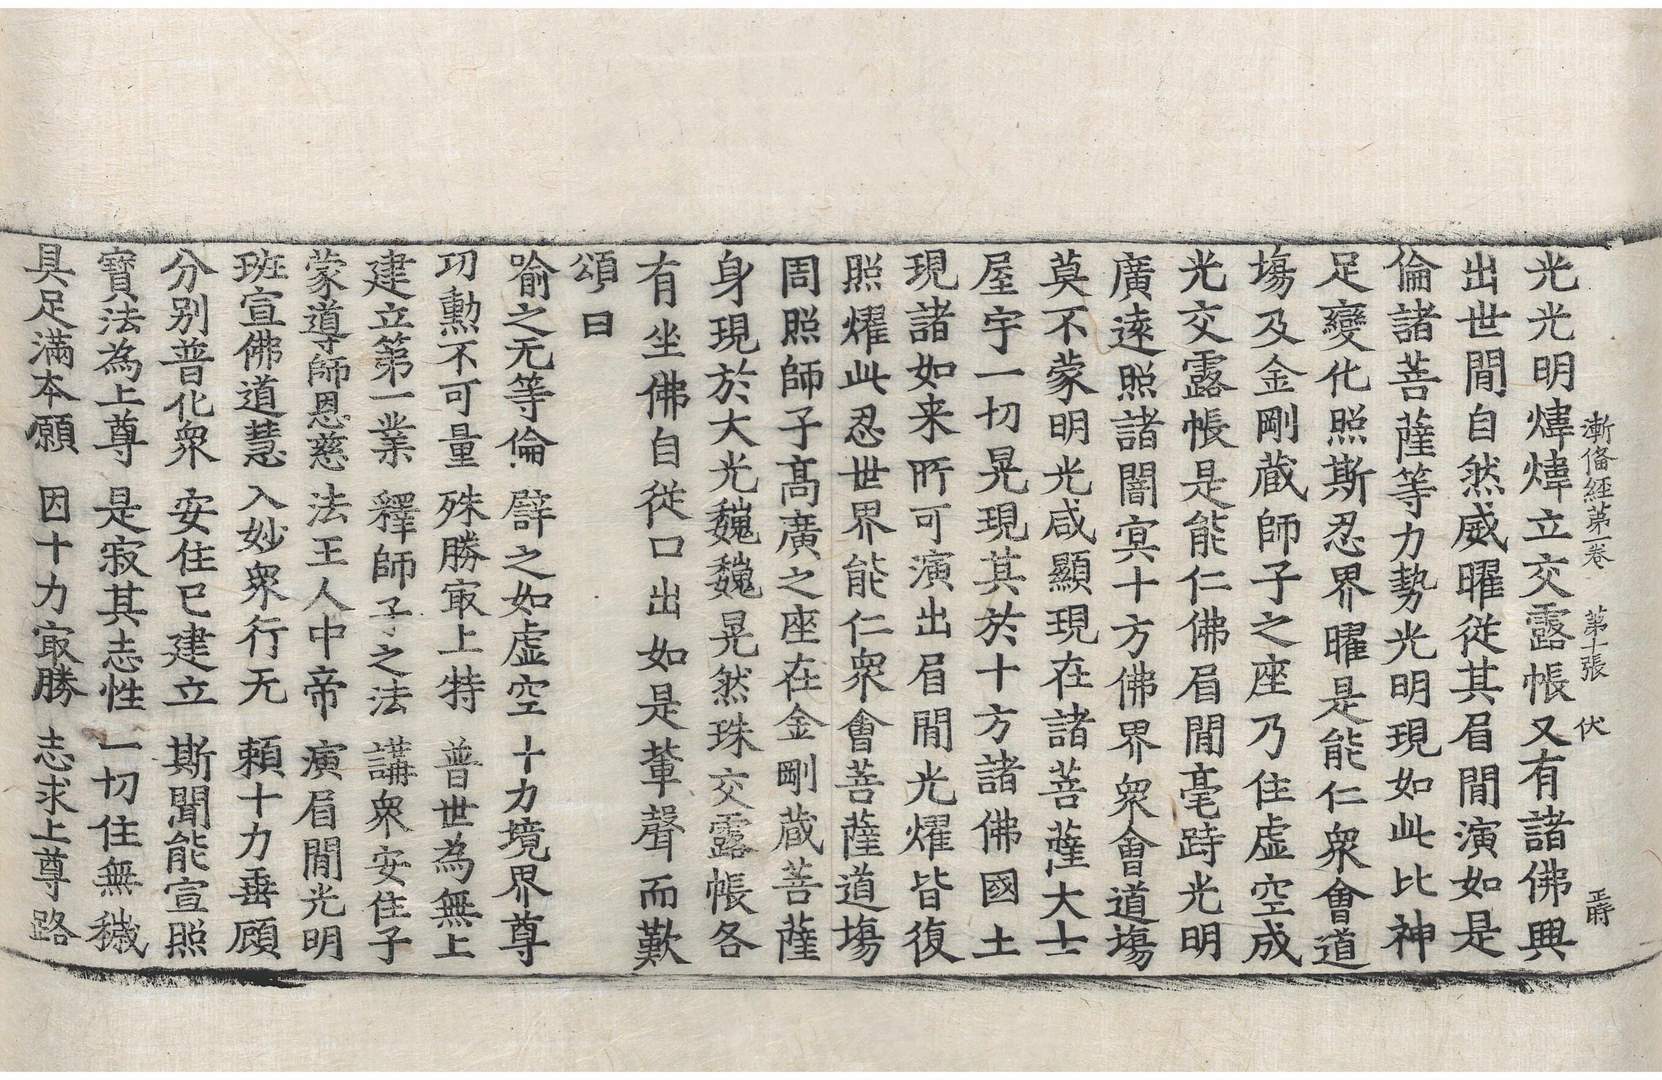 漸備經第一卷　第十張　伏　正時
光光明煒煒立交露帳又有諸佛興
出世間自然威曜従其眉間演如是
倫諸菩薩等力勢光明現如此比神
足變化照斯忍界曜是能仁衆會道
塲及金剛蔵師子之座乃住虛空成
光交露帳是能仁佛眉間毫跱光明
廣遠照諸闇冥十方佛界衆會道塲
莫不蒙明光咸顯現在諸菩薩大士
屋宇一切晃現其於十方諸佛國土
現諸如来所可演出眉間光燿皆復
照燿此忍世界能仁衆會菩薩道塲
周照師子髙廣之座在金剛蔵菩薩
身現於大光巍巍晃然珠交露帳各
有坐佛自従口出如是軰聲而歎
頌曰
喻之无等倫　譬之如虛空　十力境界尊
功勳不可量　殊勝㝡上特　普世為無上
建立第一業　釋師子之法　講衆安住子
蒙導師恩慈　法王人中帝　演眉間光明
班宣佛道慧　入妙衆行无　頼十力垂顧
分别普化衆　安住已建立　斯聞能宣照
寳法為上尊　是寂其志性　一切住無穢
具足滿本願　因十力㝡勝　志求上尊路